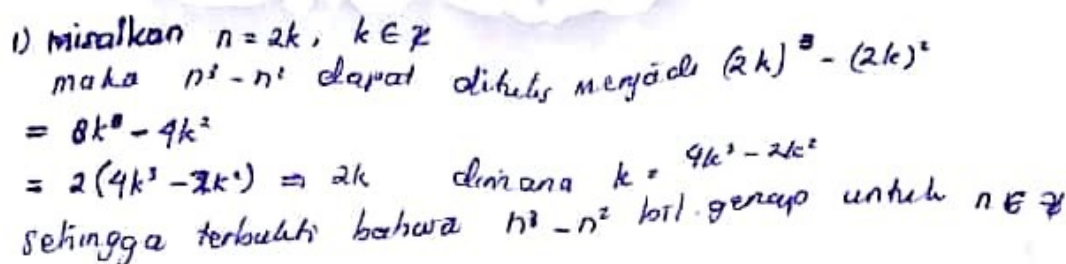 1) misalkan n = 2k, k ∈ Z
maka n³ - n² dapat ditulis menjadi (2k)³ - (2k)²
= 8k³ - 4k²
= 2(4k³ - 2k²) = 2k dimana k = 4k³ - 2k²
sehingga terbukti bahwa n³ - n² bil. genap untuk n ∈ Z